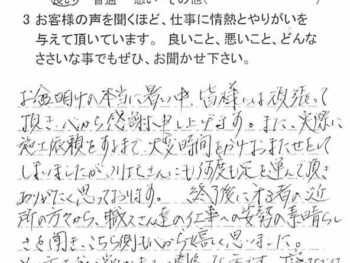 良い 普通 悪い その他(
3 お客様の声を聞くほど、仕事に情熱とやりがいを
与えて頂いています。 良いこと、悪いこと、どんな
ささいな事でもぜひ、お聞かせ下さい。
お盆明けの本当に暑い中、皆様には頑張って
頂き、心から感謝申し上げます。また、実際に
施工依頼をするまで、大変時間をかけお待たせして
しまいましたが、 さんにも何度も足を運んで頂き
ありがたく思っております。 終了後に 近
所の方々から、職人さん達の仕事への姿勢の素晴らし
さを聞き、こちら側も心から嬉しく思いました。